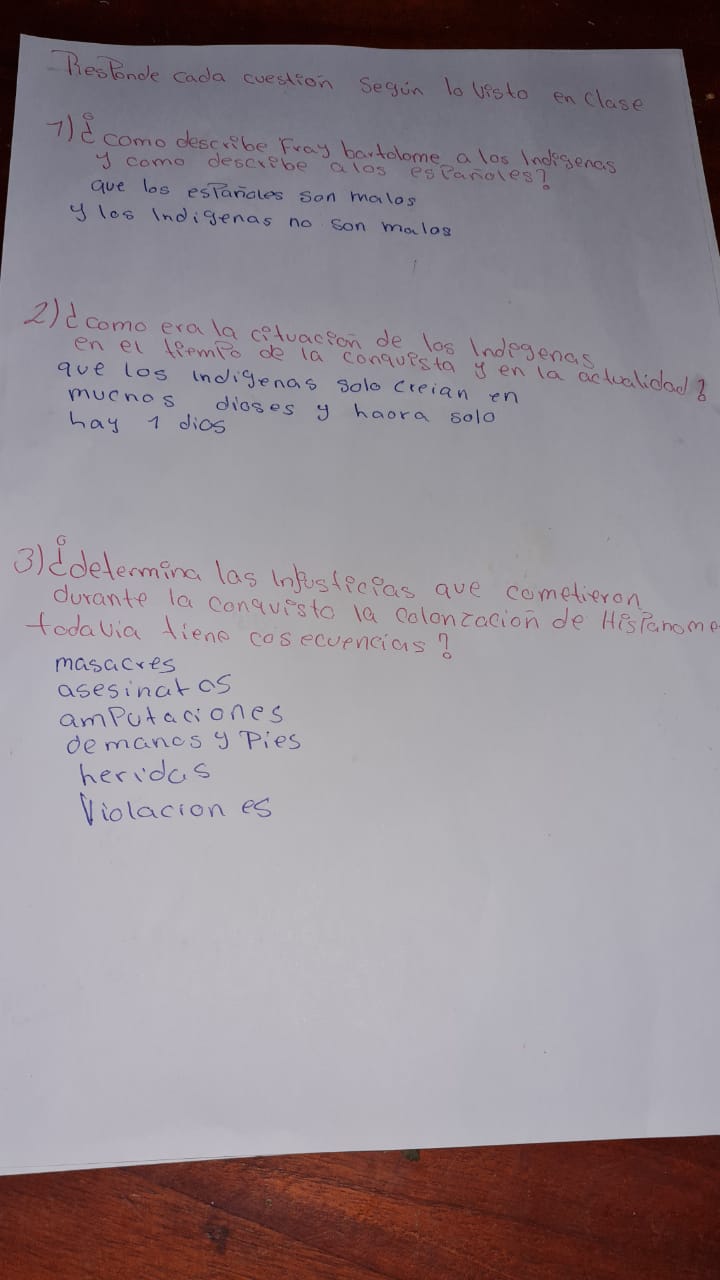 Responde cada cuestión Según lo Visto en Clase
1) ¿como describe Fray bartolome a los Indigenas
y como describe a los españoles?
que los españoles son malos
y los Indigenas no son malos
2) ¿como era la cituación de los Indigenas
en el tiempo de la conquista y en la actualidad?
que los indigenas solo creian en
muchos dioses y haora solo
hay 1 dios
3) ¿determina las Injusticias que cometieron
durante la conquista la colonzación de Hispanome
todavia tiene cosecuencias?
masacres
asesinatos
amputaciones
de manos y Pies
heridas
Violaciones